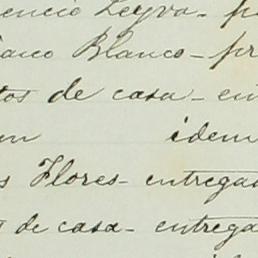 encio Leyva - p
anco Blanco - pr
tos de casa - en
en idem
s Flores - entregad
s de casa - entrega